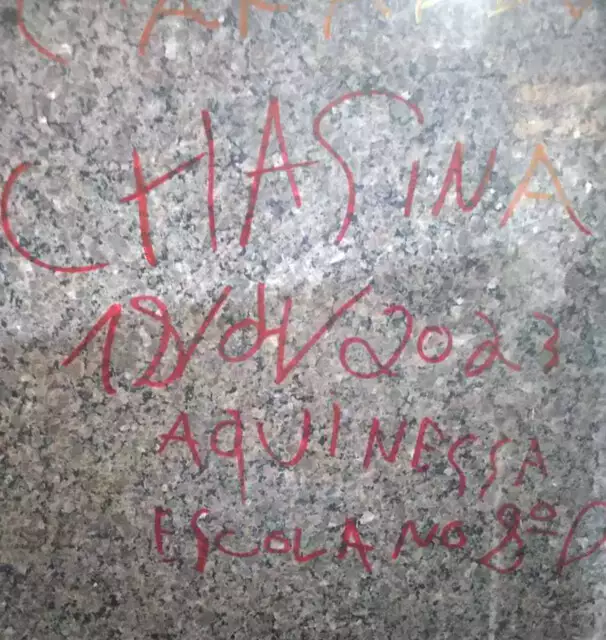 CHASINA
19/04/2023
AQUI NESSA
ESCOLA NO 8º D